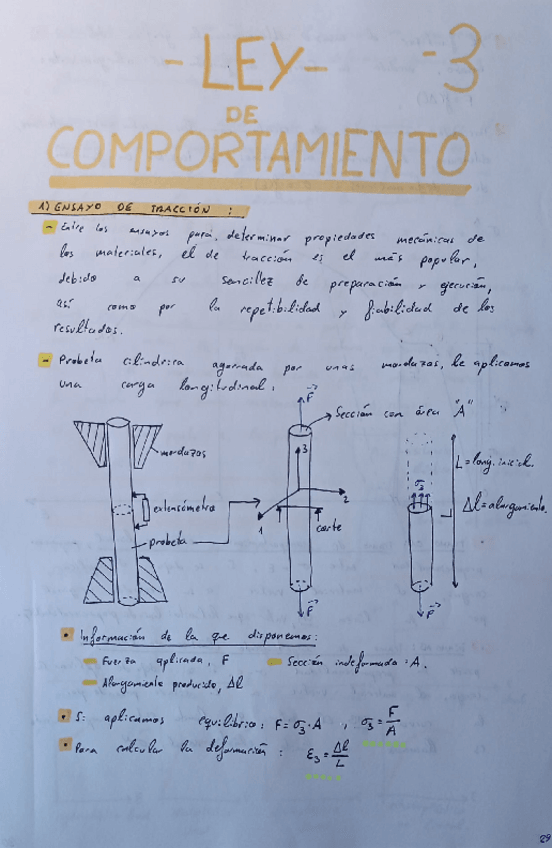 - LEY - - 3
DE
COMPORTAMIENTO
1) ENSAYO DE TRACCIÓN :
- Entre los ensayos para, determinar propiedades mecánicas de
los materiales, el de tracción es el más popular,
debido a su sencillez de preparación y ejecución,
así como por la repetibilidad y fiabilidad de los
resultados.
- Probeta cilíndrica agarrada por unas mordazas, le aplicamos
una carga longitudinal.
F
Sección con área "A"
mordazas
3
σ3
L = long. inicial.
extensómetro
2
Δl = alargamiento.
1
corte
probeta
F
F
• Información de la que disponemos:
- Fuerza aplicada, F - Sección indeformada: A.
- Alargamiento producido, Δl
• Si aplicamos equilibrio: F = σ3 · A , σ3 = F/A
• Para calcular la deformación : ε3 = Δl/L
29